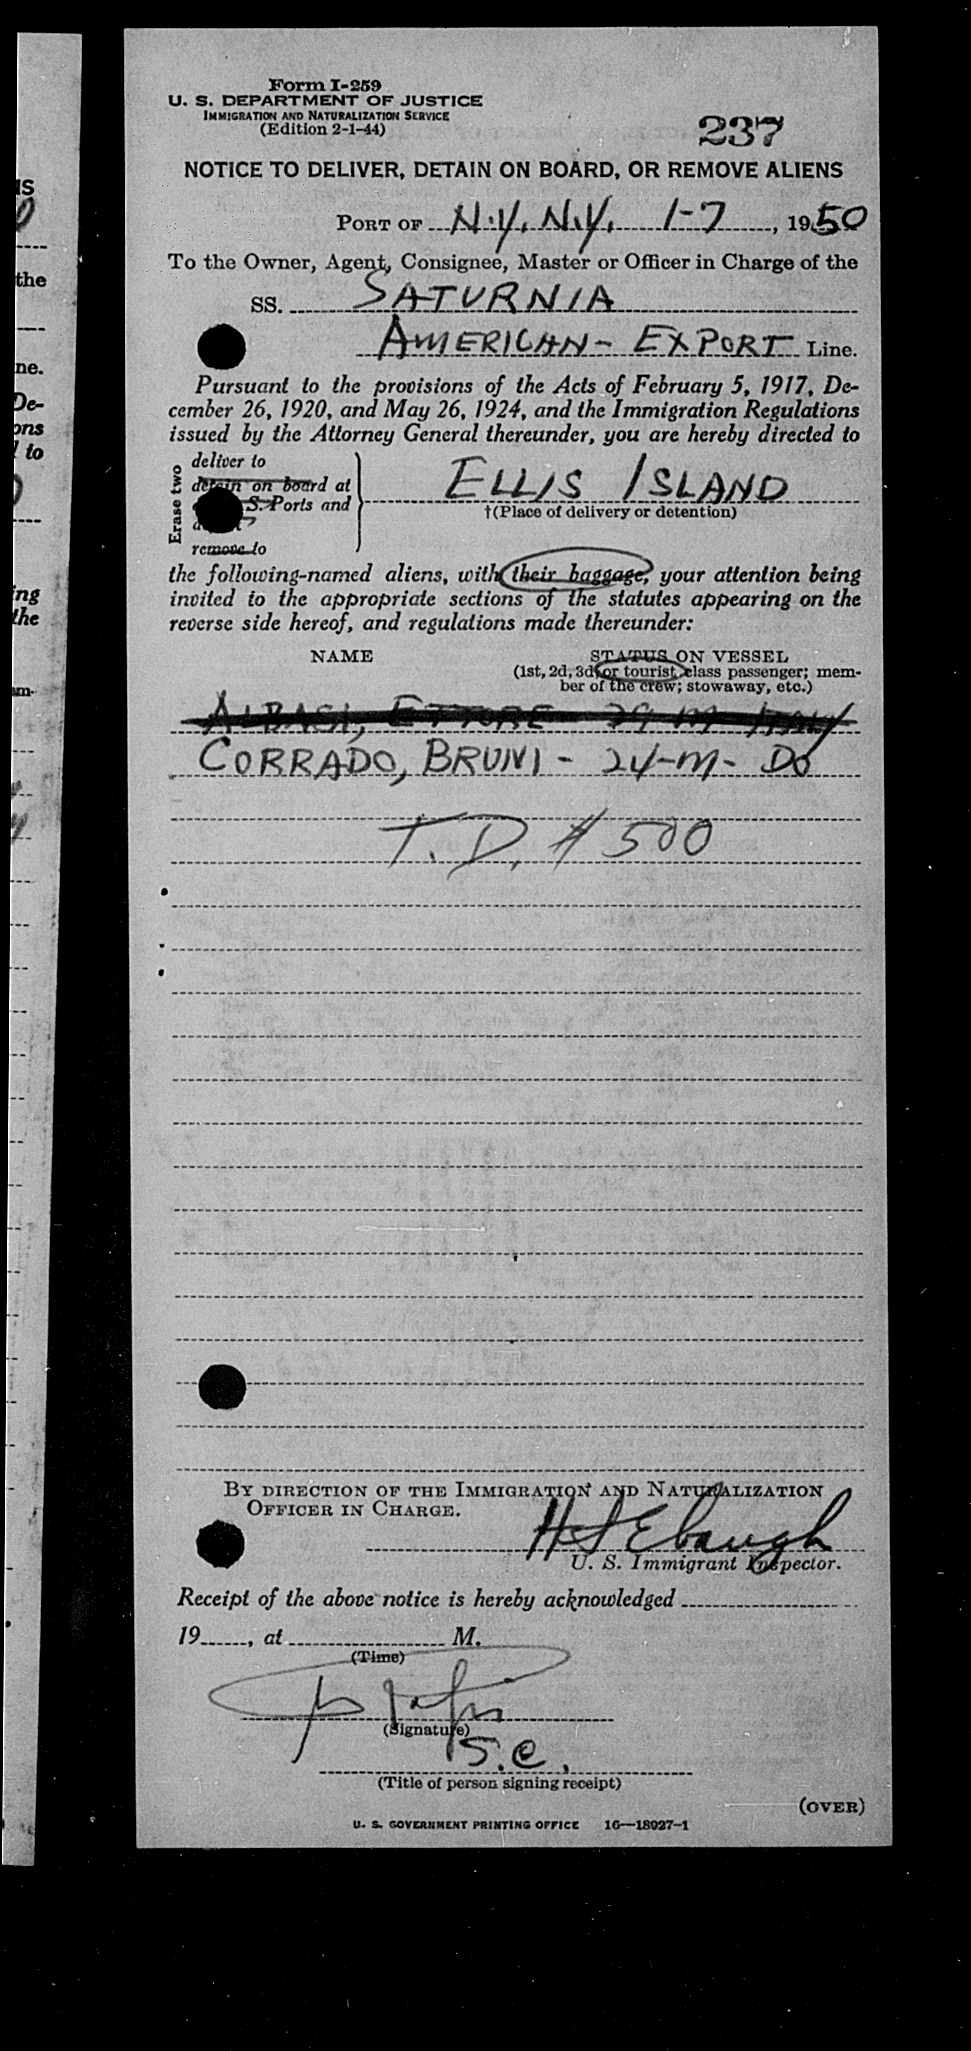 Form I-259
U. S. DEPARTMENT OF JUSTICE
IMMIGRATION AND NATURALIZATION SERVICE
(Edition 2-1-44)
237
NOTICE TO DELIVER, DETAIN ON BOARD, OR REMOVE ALIENS
PORT OF N.Y. N.Y. 1-7, 1950
To the Owner, Agent, Consignee, Master or Officer in Charge of the
SS. SATURNIA
AMERICAN-EXPORT Line.
Pursuant to the provisions of the Acts of February 5, 1917, De-
cember 26, 1920, and May 26, 1924, and the Immigration Regulations
issued by the Attorney General thereunder, you are hereby directed to
Erase two
deliver to
detain on board at
S. Ports and
remove to
ELLIS ISLAND
†(Place of delivery or detention)
the following-named aliens, with their baggage, your attention being
invited to the appropriate sections of the statutes appearing on the
reverse side hereof, and regulations made thereunder:
NAME STATUS ON VESSEL
(1st, 2d, 3d, or tourist class passenger; mem-
ber of the crew; stowaway, etc.)
ALBASI, ETTORE 29 M ITALY
CORRADO, BRUNI - 24-M- DO
T.D. # 500
BY DIRECTION OF THE IMMIGRATION AND NATURALIZATION
OFFICER IN CHARGE.
H S Ebaugh
U. S. Immigrant Inspector.
Receipt of the above notice is hereby acknowledged
19, at M.
(Time)
(Signature)
S.C.
(Title of person signing receipt)
(OVER)
U. S. GOVERNMENT PRINTING OFFICE 16—18927-1